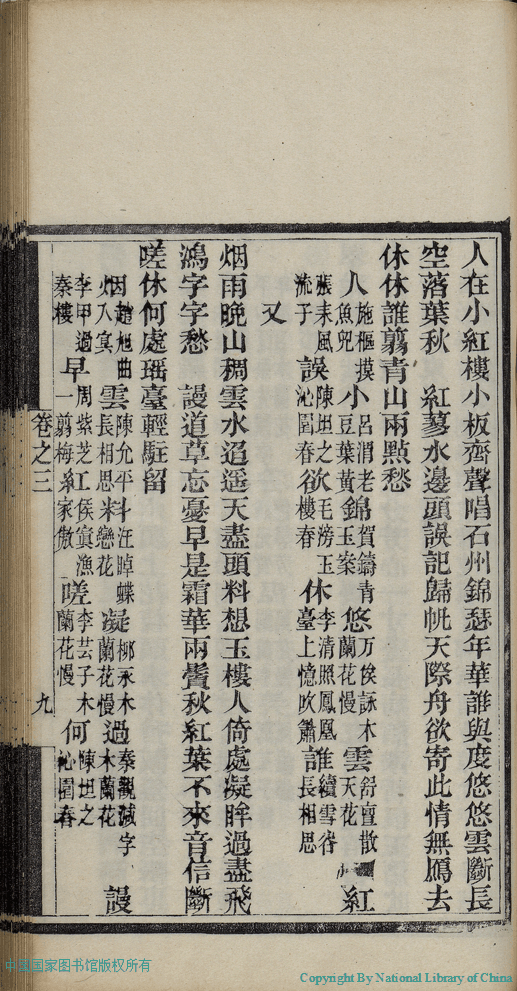 人在小紅樓小板齊聲唱石州錦瑟年華誰與度悠悠雲斷長
空落葉秋　紅蓼水邊頭誤記歸帆天際舟欲寄此情無鴈去
休休誰翦青山兩點愁
人施樞摸魚兒　小呂渭老豆葉黃　錦賀鑄青玉案　悠万俟詠木蘭花慢　雲舒亶散天花　紅
張耒風流子　誤陳坦之沁園春　欲毛滂玉樓春　休李清照鳳凰臺上憶吹簫　誰續雪谷長相思
又
烟雨晚山稠雲水迢遥天盡頭料想玉樓人倚處凝眸過盡飛
鴻字字愁　謾道草忘憂早是霜華兩鬢秋紅葉不來音信斷
嗟休何處瑶臺輕駐留
烟趙旭曲入冥　雲陳允平長相思　料汪晫蝶戀花　凝柳永木蘭花慢　過秦觀減字木蘭花　謾
李甲過秦樓　早周紫芝一翦梅　紅侯寘漁家傲　嗟李芸子木蘭花慢　何陳坦之沁園春
卷之三
九
中国国家图书馆版权所有
Copyright By National Library of China